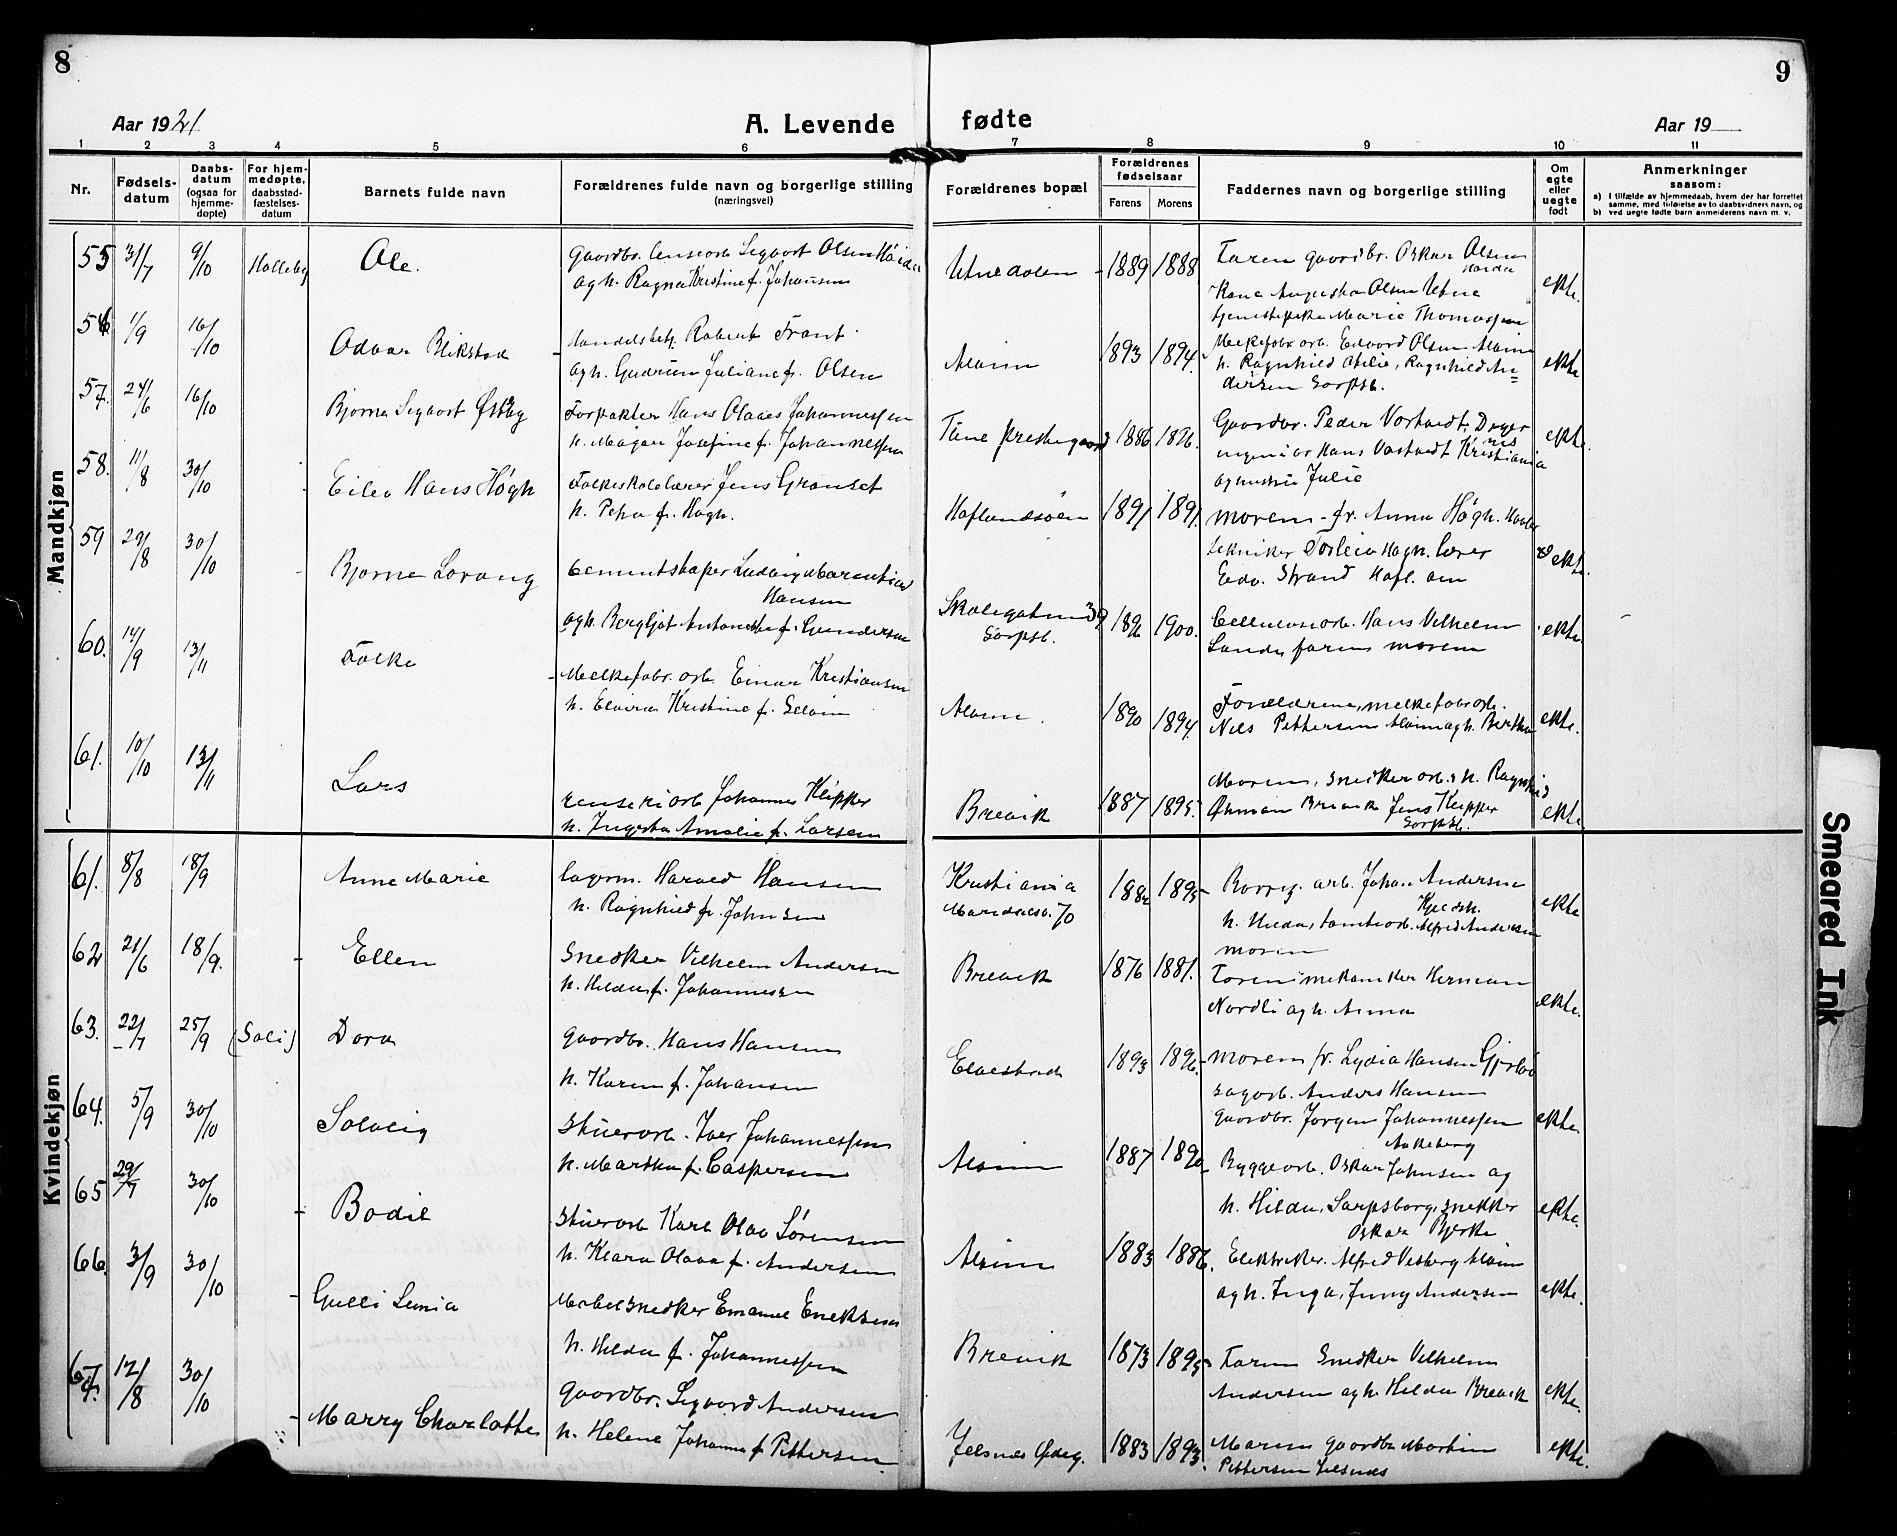 8
9
Aar 1921
A. Levende fødte
Aar 19
1 2 3 4 5 6 7 8 9 10 11
Nr.
Fødsels-
datum
Daabs-
datum
(ogsaa for
hjemme-
døpte)
For hjem-
medøpte,
daabsstad-
fæstelses-
datum
Barnets fulde navn
Forældrenes fulde navn og borgerlige stilling
(næringsvei)
Forældrenes bopæl
Forældrenes
fødselsaar
Farens
Morens
Faddernes navn og borgerlige stilling
Om
egte
eller
uegte
født
Anmerkninger
saasom:
a) I tilfælde av hjemmedaab, hvem der har forrettet
samme, med tilføielse av to daabsvidners navn, og
b) ved uegte fødte barn anmelderens navn m. v.
Mandkjøn
55 31/7 9/10 Holleby Ole.
Gaardbr. Sigvart Olsen
og h. Ragna Kristine f. Johansen
1889 1888
Faren gaardbr. Oskar Olsen
Kone Augusta Olsen
Marie Thomassen
ekte.
56 1/9 16/10 Odvar Blikstad
Robert
og h. Gudrun Juliane f. Olsen
Alvim 1893 1894.
Melkefabr. arb. Edvard Olsen Alvim
h. Ragnhild Otilie, Ragnhild An=
dersen Sarpsb.
ekte
57. 24/6 16/10 Bjarne Sigvart Østby
Forpakter Hans Olaves Johannessen
h. Josefine f. Johannessen
Tune prestegaard 1886 1896.
Gaardbr. Peder
ingeniør Hans Kristiania
Julie
ekte.
58. 11/8 30/10 Eilev Hans Høgh
Folkeskolelærer Jens
h. Petra f. Høgh.
Haflundsøen 1891 1891.
Moren - fr. Anna Høgh.
tekniker Høgh. lærer
Edv. Strand
ekte.
59 29/8 30/10 Bjarne Lorang
Cementstøper Ludvig
Hansen
og h. Bergljot f. Gundersen
Skolegaten 39
Sarpsb.
1896 1900.
Cellulosearb. Hans Vilhelm
Lande faren moren
ekte.
60. 14/9 13/11 Folke
Melkefabr. arb. Einar Kristiansen
h. Elvira Kristine f.
Alvim. 1890 1894.
Forældrene, melkefabr. arb.
Nils Pettersen Alvim og h. Bertha
ekte.
61. 10/10 13/11 Lars
renseriarb Johannes Klipper
h. Ingeba Amalie f. Larsen
Brevik 1887 1895.
Moren, snedker arb. h. Ragnhild
Øhman Brevik Jens Klipper
Sarpsb.
ekte
Kvindekjøn
61. 8/8 18/9 Anne Marie
Lagerm. Harald Hansen
h. Ragnhild f. Johnsen
Kristiania
Maridalsv. 70
1882 1895
arb. Johan Andersen
h. Hilda, tomtearb. Alfred Andersen
moren
ekte
62 21/6 18/9. Ellen
Snedker Vilhelm Andersen
h. Hilda f. Johannessen
Brevik 1876 1881.
Faren mekaniker Herman
Nordli og h. Anna
ekte.
63. 22/7 25/9 (Soli) Dora
Gaardbr. Hans Hansen
h. Karen f. Johansen
Elvestad 1893 1896.
Moren fr. Lydia Hansen
sagarb. Anders Hansen
gaardbr. Jørgen Johannessen
ekte.
64. 5/9 30/10 Solveig
Stuerarb. Iver Johannessen
h. Martha f. Caspersen
Alvim 1887 1890
Byggearb. Oskar Johnsen og
h. Hilda, Sarpsborg, snekker
Oskar Bjerke
ekte.
65 29/7 30/10 Bodil
Stuerarb Karl Olav Sørensen
h. Klara Olava f. Andersen
Alvim 1883 1886.
Elektriker. Alfred Alvim
og h. Inga, Jenny Andersen
ekte.
66. 3/9 30/10 Gulli
Møbelsnedker Emanuel Eriksen
h. Hilda f. Johannessen
Brevik 1873 1895
Faren Snedker Vilhelm
Andersen og h. Hilda Brevik
ekte.
67. 12/8 30/10 Marry Charlotte
Gaardbr. Sigvard Andersen
h. Helene Johanne f. Pettersen
Jelsnes Ødeg. 1883 1893.
Moren gaardbr. Martin
Pettersen Jelsnes
ekte.
Smeared Ink